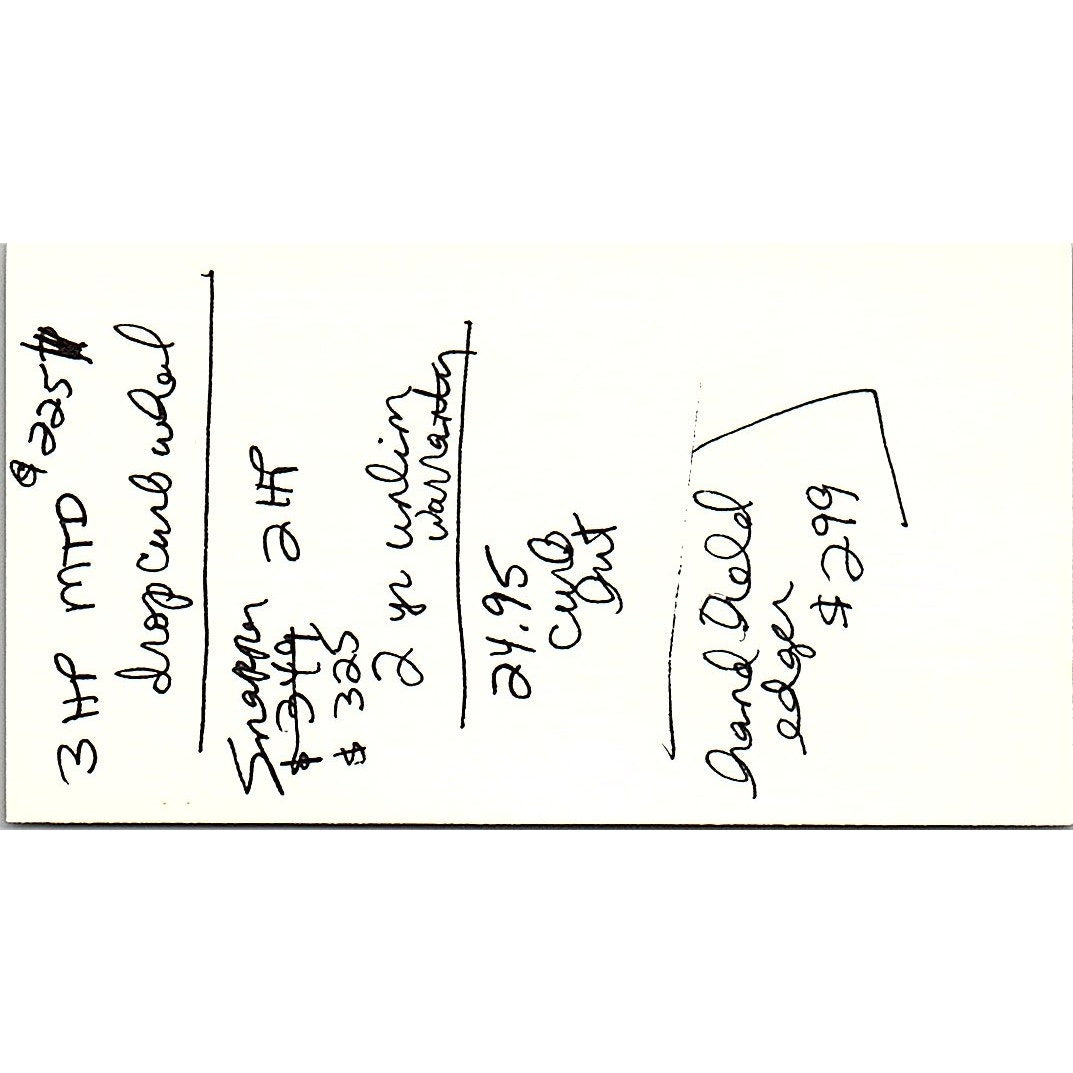 3 HP MTD $225
drop curb wheel
Snapper 2 HP
$349
$325
2 yr unlim
warranty
24.95
curb
hand held
edger
$299